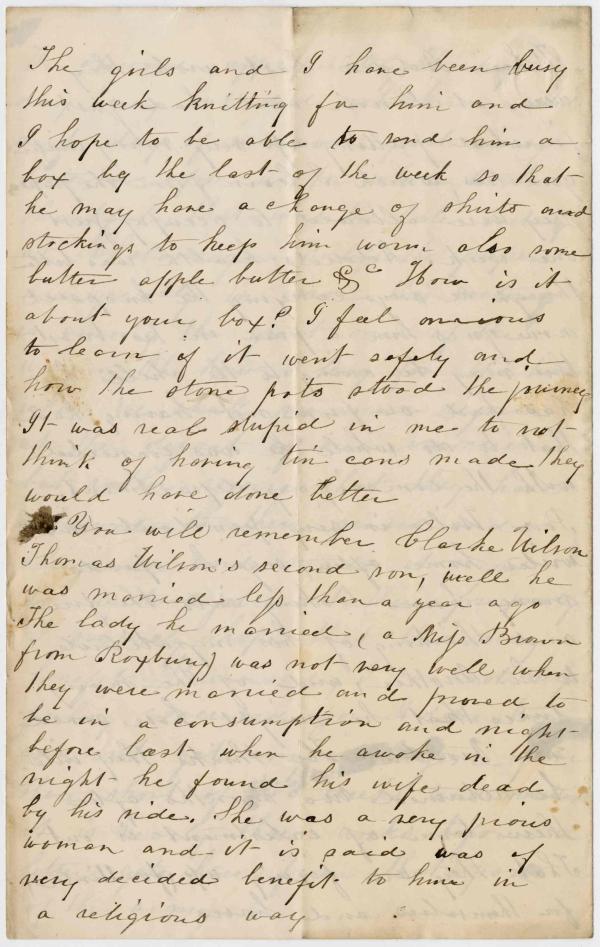 The girls and I have been busy
this week knitting for him and
I hope to be able to send him a
box by the last of the week so that
he may have a change of shirts and
stockings to keep him warm also some
butter apple butter &c How is it
about your box? I feel anxious
to learn if it went safely and
how the stone pots stood the journey
It was real stupid in me to not
think of having tin cans made they
would have done better
You will remember Clarke Wilson
Thomas Wilson's second son, well he
was married less than a year ago
The lady he married, (a Miss Brown
from Roxbury) was not very well when
they were married and proved to
be in a consumption and night
before last when he awoke in the
night he found his wife dead
by his side. She was a very pious
woman and it is said was of
very decided benefit to him in
a religious way